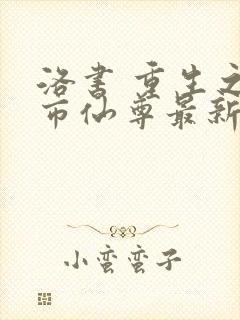 洛书 重生之
市仙尊最新
小蛮蛮子